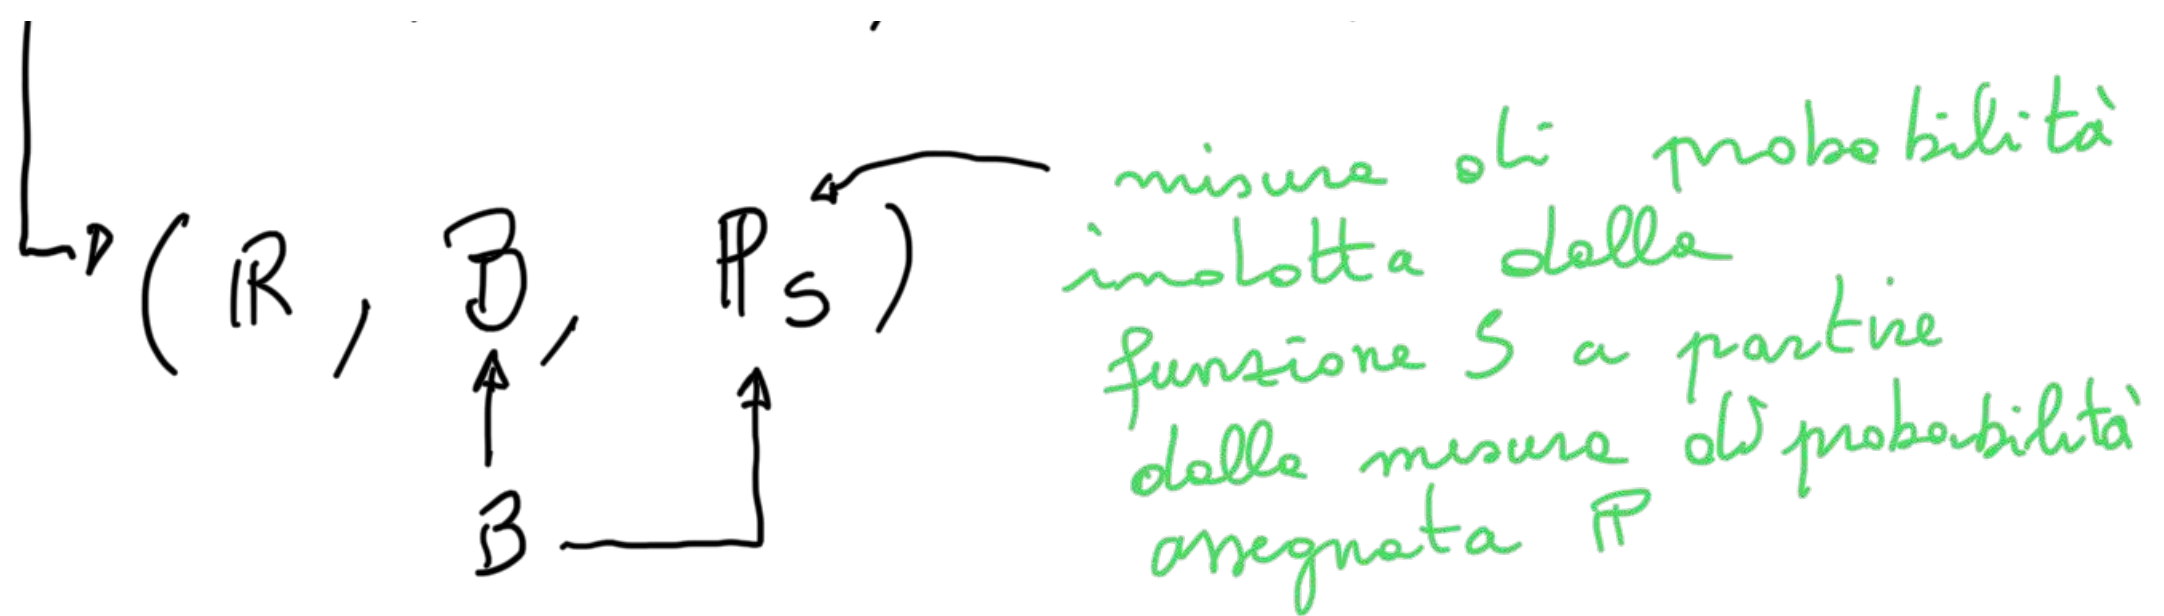 (ℝ, 𝓑, ℙ_S)
B
misura di probabilità
indotta dalla
funzione S a partire
dalla misura di probabilità
assegnata ℙ